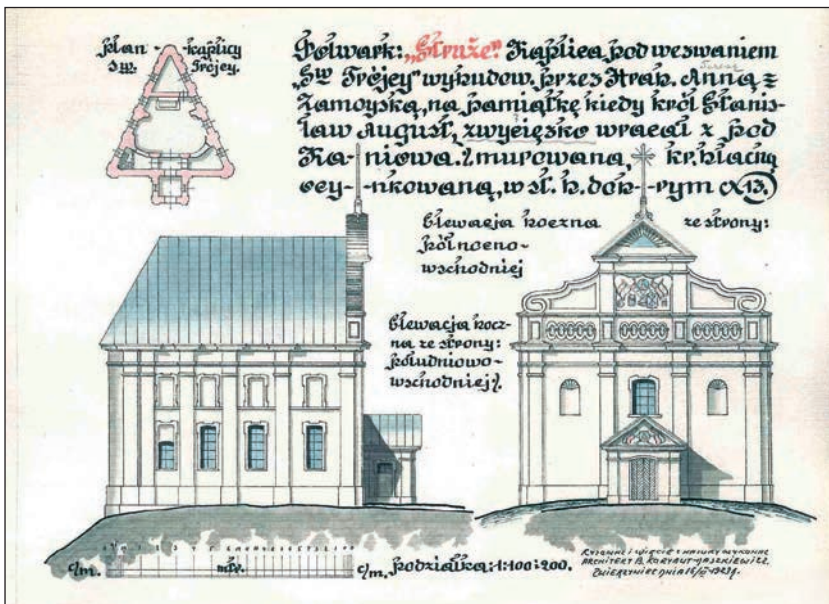 plan - kaplicy
św. Trójcy.
Folwark: „Struże" Kaplica pod wezwaniem
„Św Trójcy" wybudow. przez Hrab. Anną z
Zamoyską, na pamiątkę kiedy król Stanis-
ław August, zwycięsko wracał z pod
Kaniowa. murowana, kr. blachą
ocynkowaną, w st. b. dob-rym 13.
Elewacja boczna ze strony:
północno-
wschodniej
Elewacja bocz-
na ze strony:
południowo-
wschodniej.
c/m. mtr. c/m. podziałka: 1:100:200.
Rysował i zdjęcie z natury wykonał
architekt B. Korybut-Daszkiewicz.
Zwierzyniec dnia